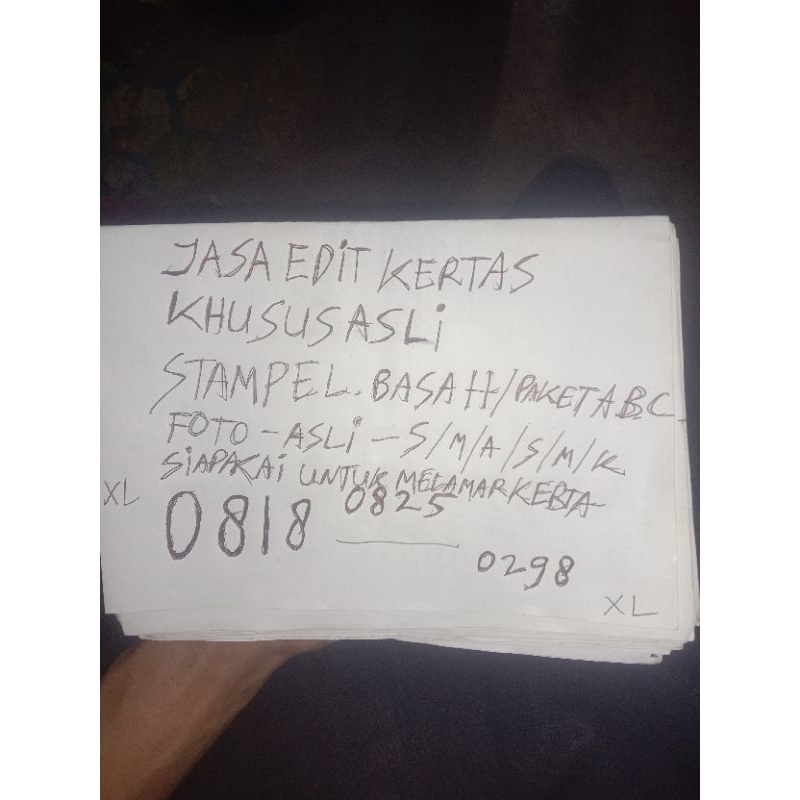 JASA EDIT KERTAS
KHUSUS ASLI
STAMPEL. BASAH/PAKET A B C
FOTO - ASLI - S/M/A/S/M/K
SIAPAKAI UNTUK MELAMAR KERTA
XL 0818 0825
0298
XL